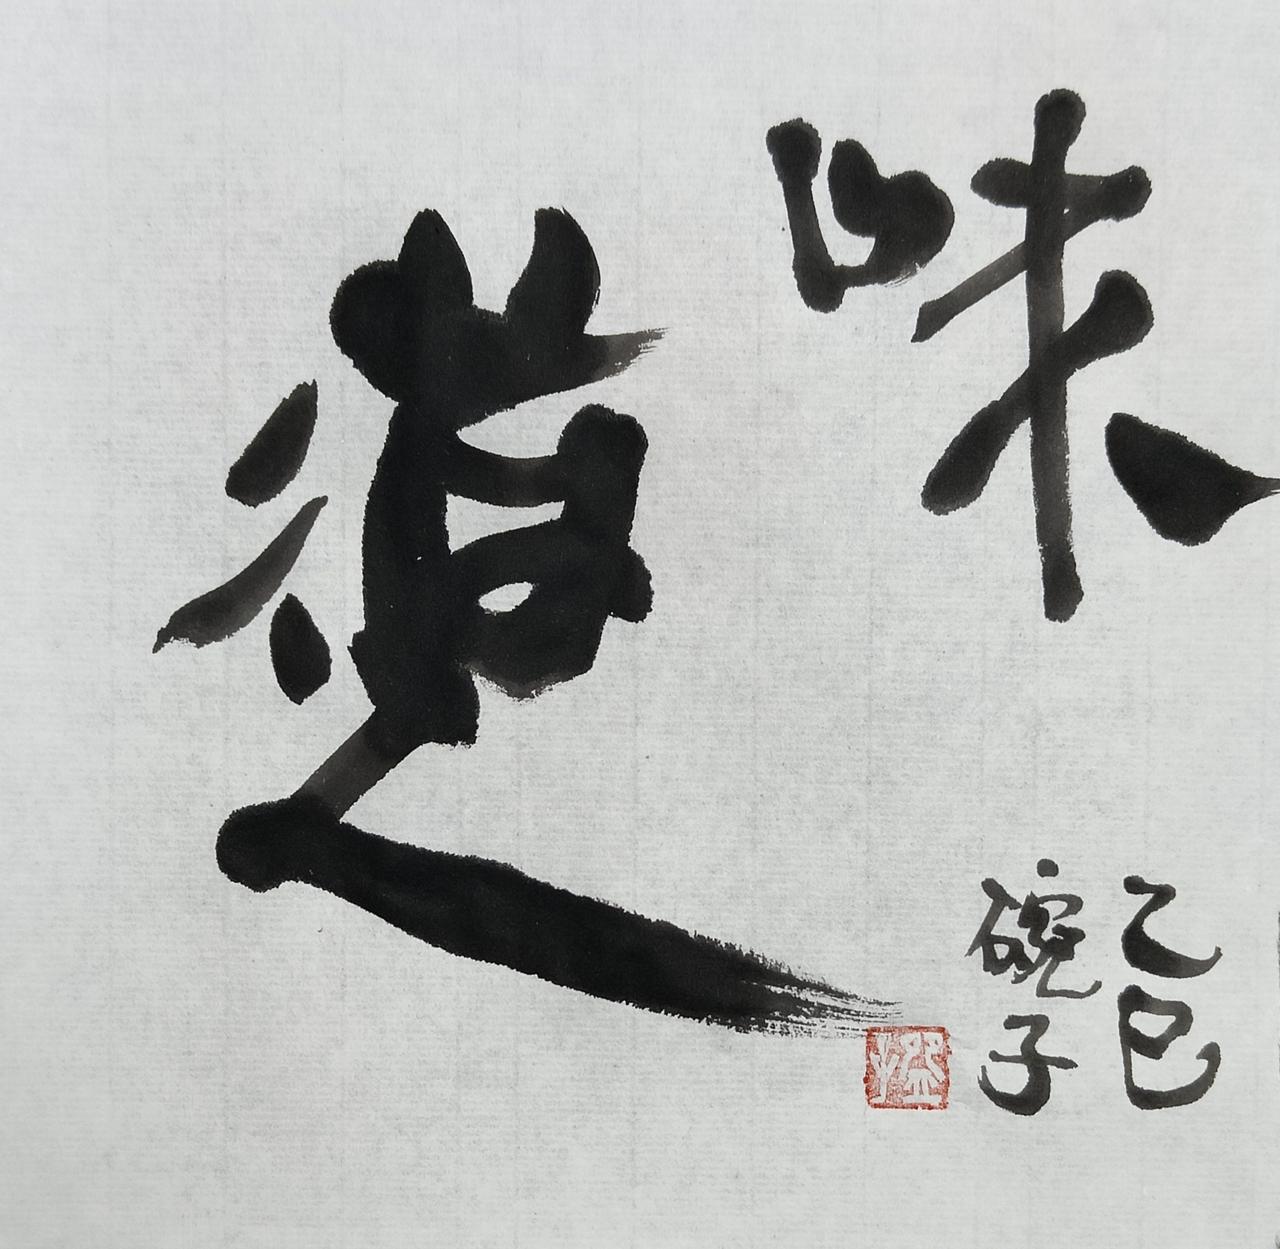 味
道
乙巳
碗子